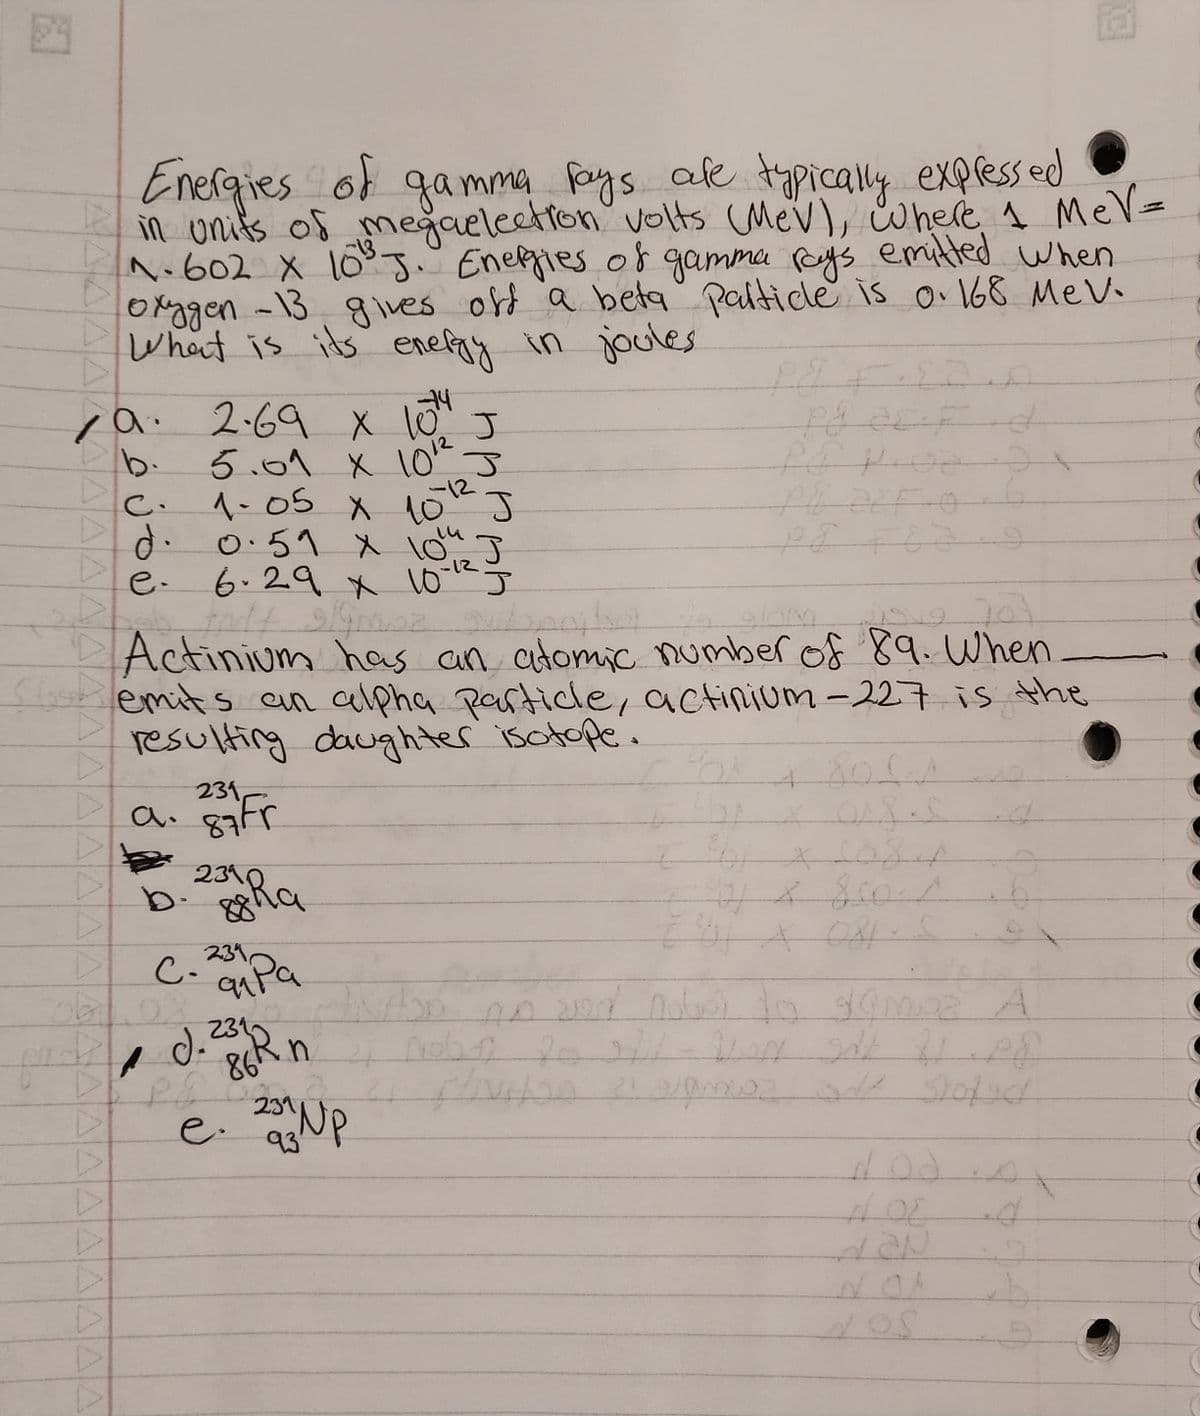 Energies of gamma rays are typically expressed
in units of megaelectron volts (MeV), where 1 MeV=
1.602 x 10⁻¹³ J. Energies of gamma rays emitted when
oxygen -13 gives off a beta particle is 0.168 MeV.
What is its energy in joules
a. 2.69 x 10⁻¹⁴ J
b. 5.01 x 10¹² J
c. 1.05 x 10⁻¹² J
d. 0.51 x 10¹⁴ J
e. 6.29 x 10⁻¹² J
Actinium has an atomic number of 89. When ____
emits an alpha particle, actinium-227 is the
resulting daughter isotope.
a. ²³¹₈₇Fr
b. ²³¹₈₈Ra
c. ²³¹₉₁Pa
d. ²³¹₈₆Rn
e. ²³¹₉₃Np